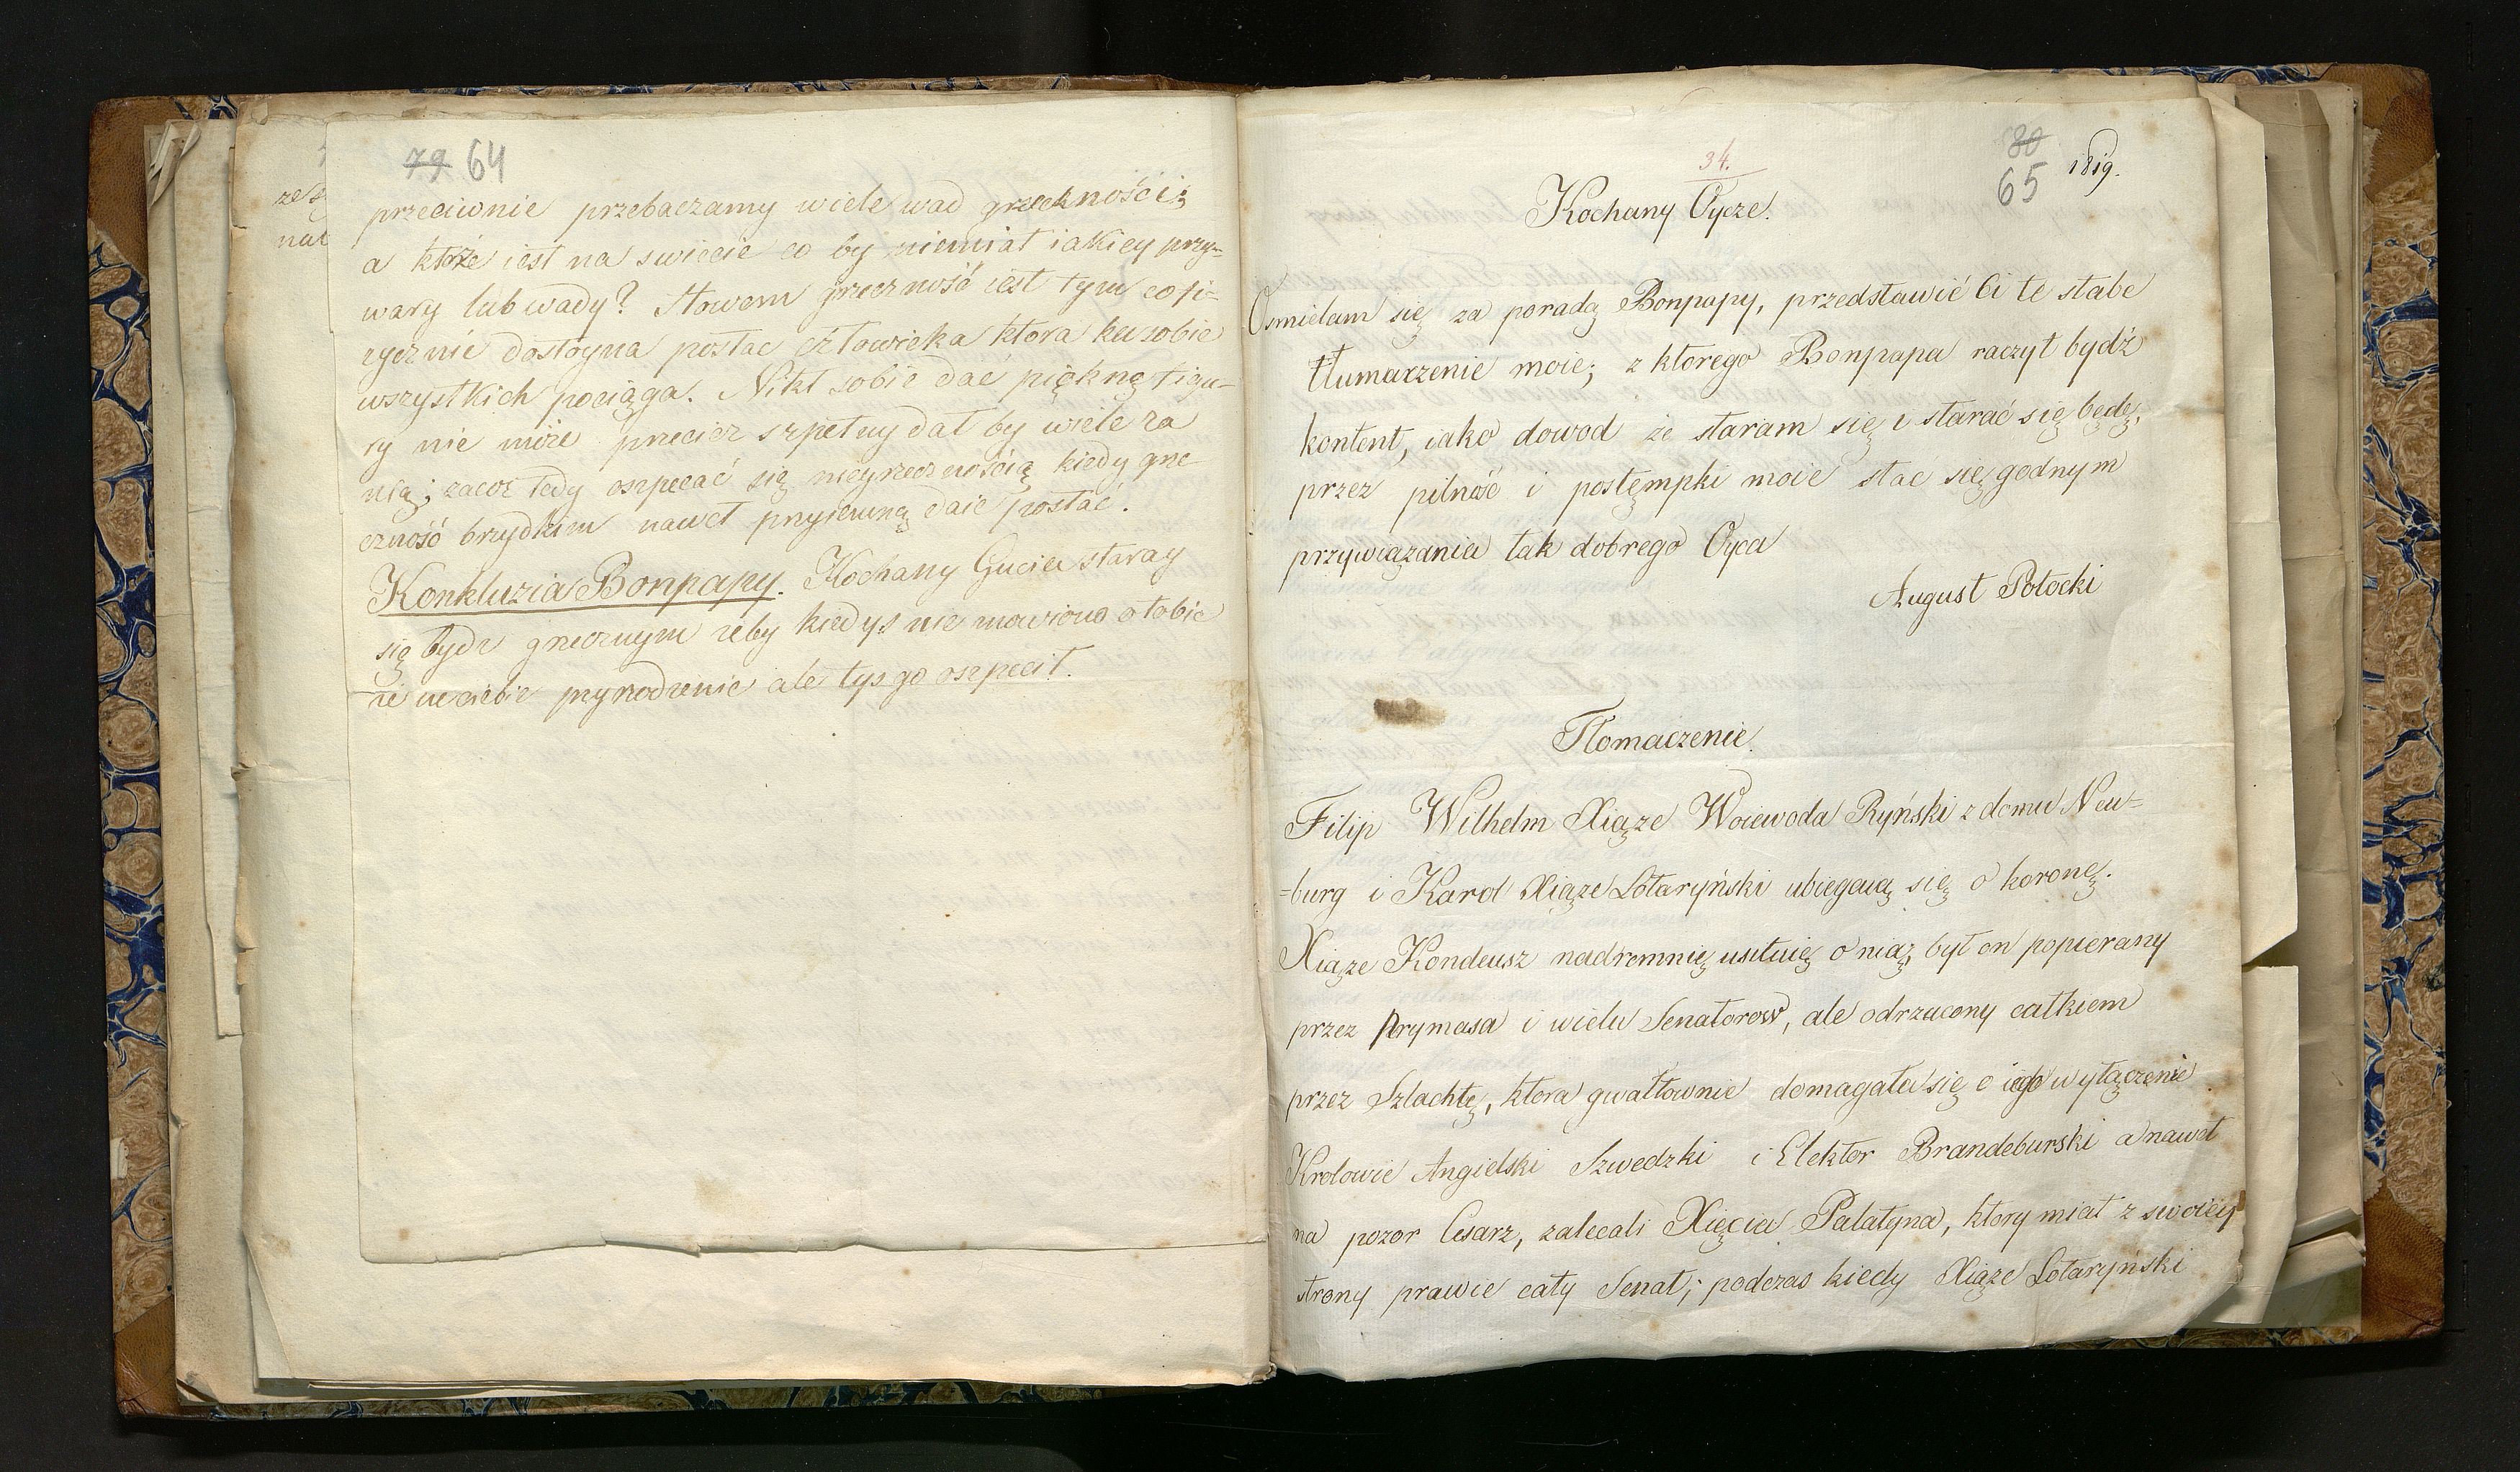 79 64
przeciwnie przebaczamy wiele wad grzeczności;
a któż iest na swiecie co by niemiał iakiey przy-
wary lub wady? Słowem grzeczność iest tym co fi-
zycznie dostoyna postac człowieka ktora ku sobie
wszystkich pociąga. Nikt sobie dać piękną figu-
ry nie może przecież szpetny dał by wiele za
nią; zacoż tedy oszpecać się niegrzecznością kiedy grze
czność brzydkim nawet przyiemną daie postać.
Konkluzia Bonpapy. Kochany Guciu staray
się bydz grzecznym żeby kiedys nie mowiono o tobie
że nie ciebie przyrodzenie ale tys go oszpecił.
ze
nat
34.
80
65 1819.
Kochany Oycze.
Osmielam się za poradą Bonpapy, przedstawić Ci te słabe
tłumarzenie moie; z ktorego Bonpapa raczył bydź
kontent, iako dowod że staram się i starać się będę,
przez pilność i postęmpki moie stac się godnym
przywiązania tak dobrego Oyca
August Potocki
Tłomaczenie.
Filip Wilhelm Xiąze Woiewoda Ryński z domu Neu=
=burg i Karol Xiąze Lotaryński ubiegaią się o koronę.
Xiąze Kondeusz nadremnię usiłuię o nią, był on popierany
przez Prymasa i wielu Senatorow, ale odrzucony całkiem
przez Szlachtę, ktora gwałtownie domagała się o iego wyłączenie
Krolowie Angielski Szwedzki i Elektor Brandeburski a nawet
na pozor Cesarz, zalecali Xięcia Palatyna, ktory miał z swoiey
strony prawie cały Senat; podczas kiedy Xiąze Lotaryński